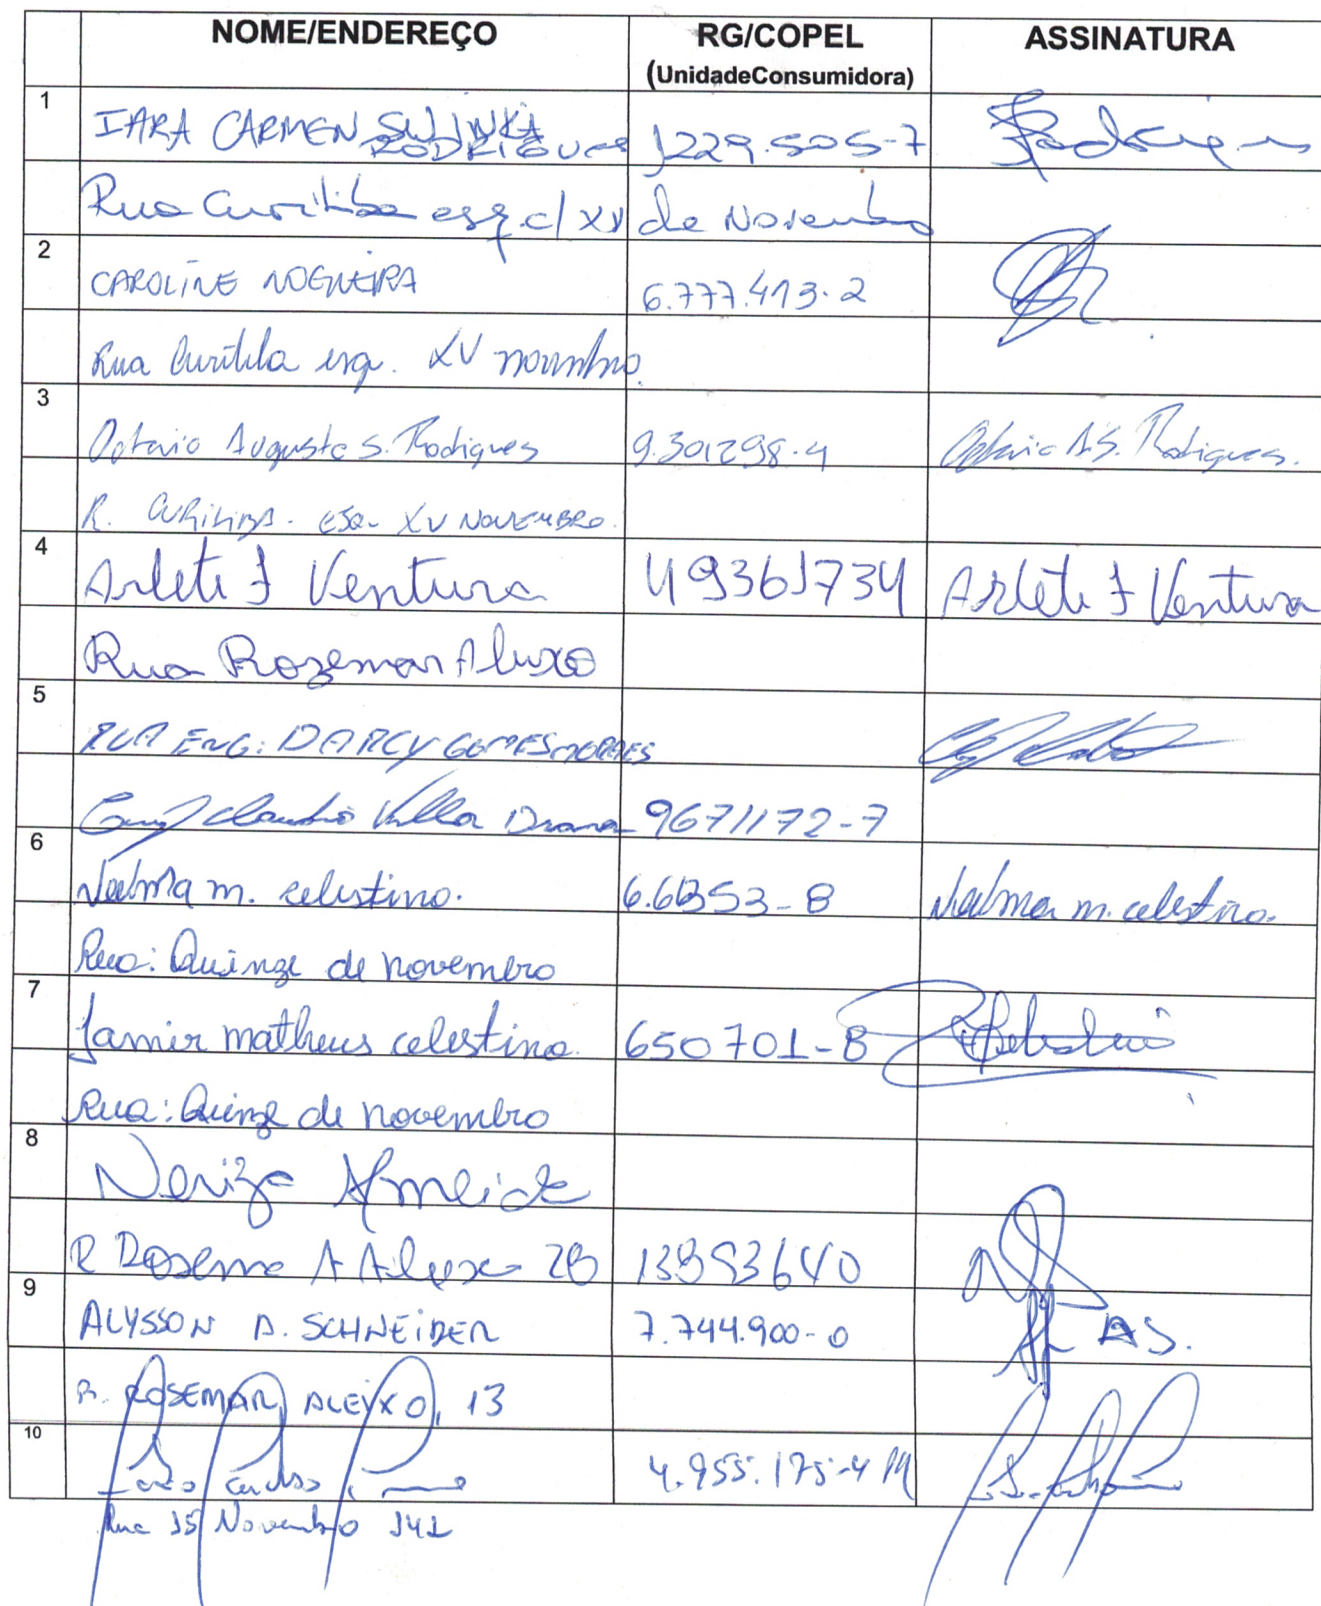 NOME/ENDEREÇO RG/COPEL ASSINATURA
(UnidadeConsumidora)
1
IARA CARMEN SULINKA
RODRIGUES 1229.505-7 Rodrigues
Rua Curitiba esq. c/ XV de Novembro
2
CAROLINE NOGUEIRA 6.777.413-2
Rua Curitiba esq. XV novembro.
3
Octavio Augusto S. Rodrigues 9.301298-4 Octavio A.S. Rodrigues.
R. CURITIBA - ESQ- XV NOVEMBRO.
4
Arlete J Ventura 49361734 Arlete J Ventura
Rua Rozemar Aluxo
5
RUA ENG: DARCY GOMES MORAES
Claudio Villa 9671172-7
6
m. celestino. m. celestino.
Rua: Quinze de novembro
7
Jamir matheus celestino. 650701-8
Rua: Quinze de novembro
8
Neriza Almeida
R 28 13993640
9
ALYSSON D. SCHNEIDER 7.744.900-0 AS.
R. ROSEMAR ALEIXO, 13
10
João Carlos 4.955.175-4
Rua 15 Novembro 141